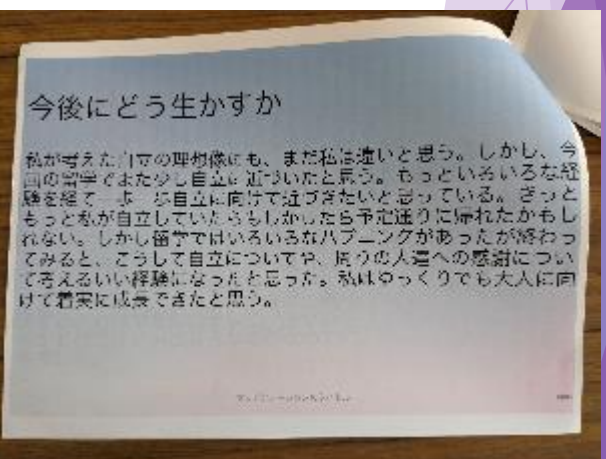 今後にどう生かすか
私が考えた自立の理想像にも、まだ私は遠いと思う。しかし、今
回の留学でまた少し自立に近づいたと思う。もっといろいろな経
験を経て一歩一歩自立に向けて近づきたいと思っている。きっと
もっと私が自立していたらもしかしたら予定通りに帰れたかもし
れない。しかし留学ではいろいろなハプニングがあったが終わっ
てみると、こうして自立についてや、周りの人達への感謝につい
て考えるいい経験になったと思った。私はゆっくりでも大人に向
けて着実に成長できたと思う。